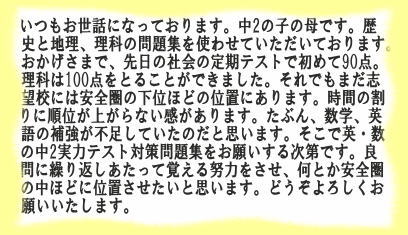 いつもお世話になっております。中2の子の母です。歴
史と地理、理科の問題集を使わせていただいております。
おかげさまで、先日の社会の定期テストで初めて90点。
理科は100点をとることができました。それでもまだ志
望校には安全圏の下位ほどの位置にあります。時間の割
りに順位が上がらない感があります。たぶん、数学、英
語の補強が不足していたのだと思います。そこで英・数
の中2実力テスト対策問題集をお願いする次第です。良
問に繰り返しあたって覚える努力をさせ、何とか安全圏
の中ほどに位置させたいと思います。どうぞよろしくお
願いいたします。